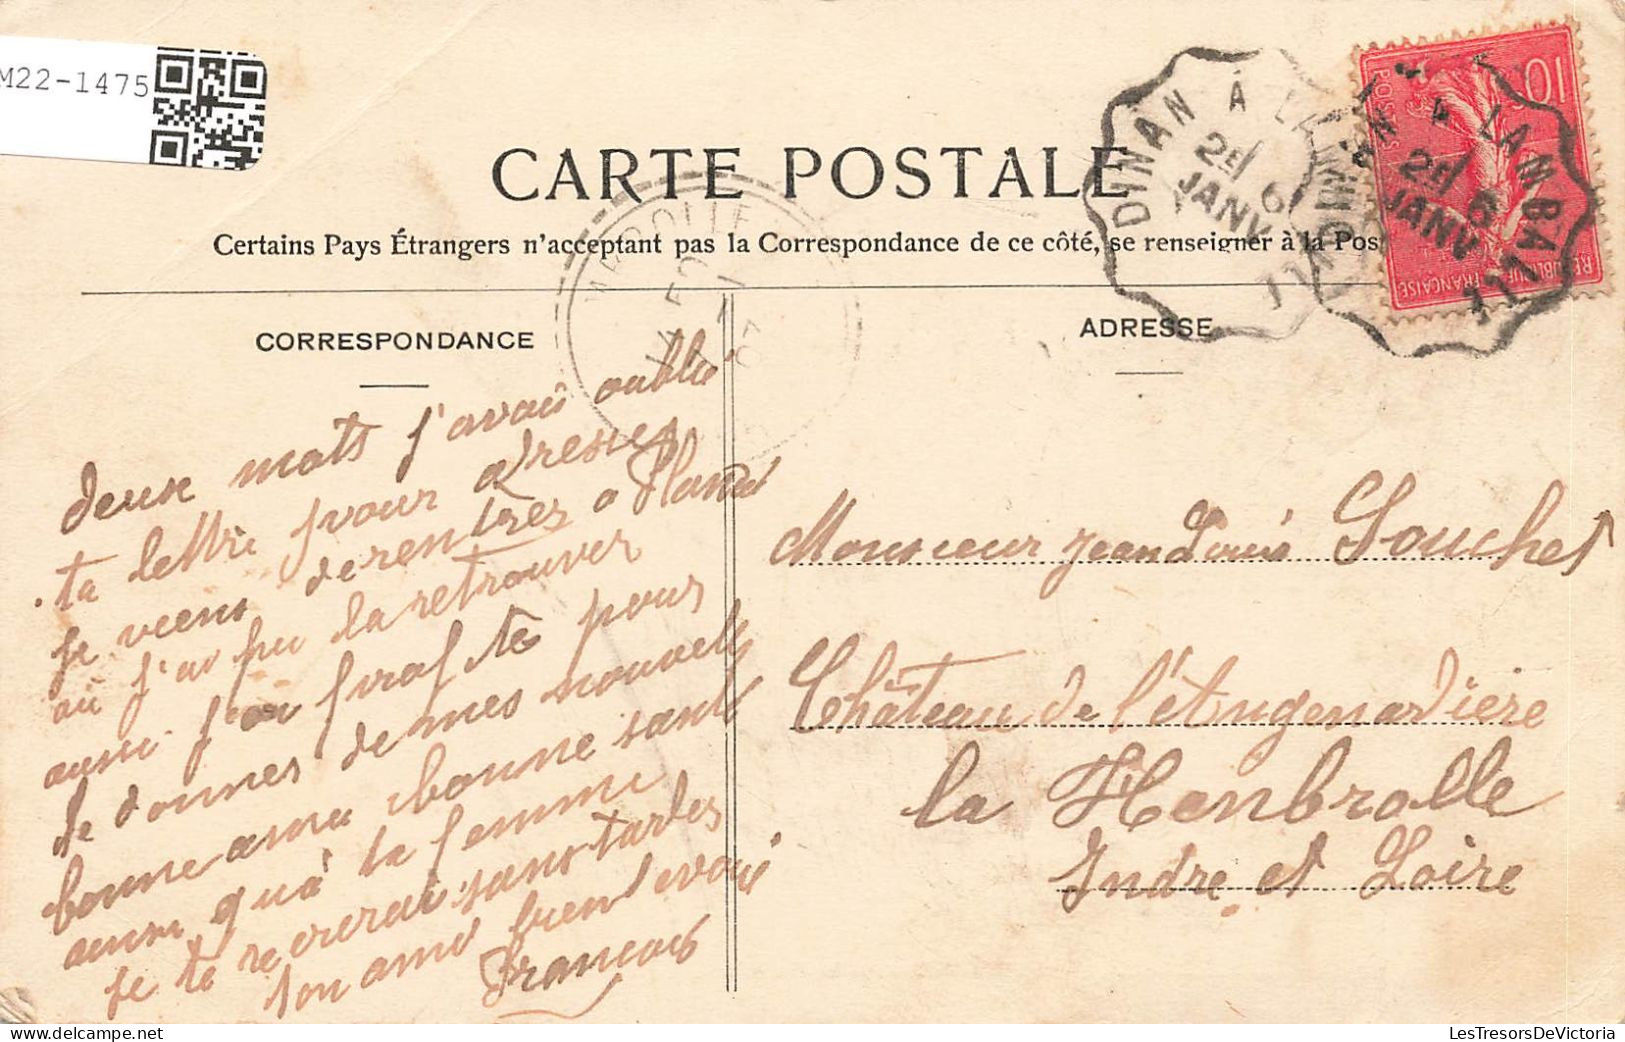 M22-1475
CARTE POSTALE
Certains Pays Étrangers n'acceptant pas la Correspondance de ce côté, se renseigner à la Pos
CORRESPONDANCE
ADRESSE
DINAN À LAMBALLE
2E/ 6
JANV
DINAN À LAMBALLE
2E/ 6
JANV
10
POSTES
REPUBLIQUE FRANÇAISE
deux mots j'avais oublié
ta lettre pour adresser
je viens de rentrer a
ou j'ai pu la retrouver
aussi j'en profite pour
te donner de mes nouvells
bonne année bonne santé
ainsi qu'à ta femme
je te recerai sans tarder
ton ami bien devoué
François
Monsieur jean Louis Souchet
Château de l'étugenardiere
la Membrolle
Indre et Loire
LesTresorsDeVictoria